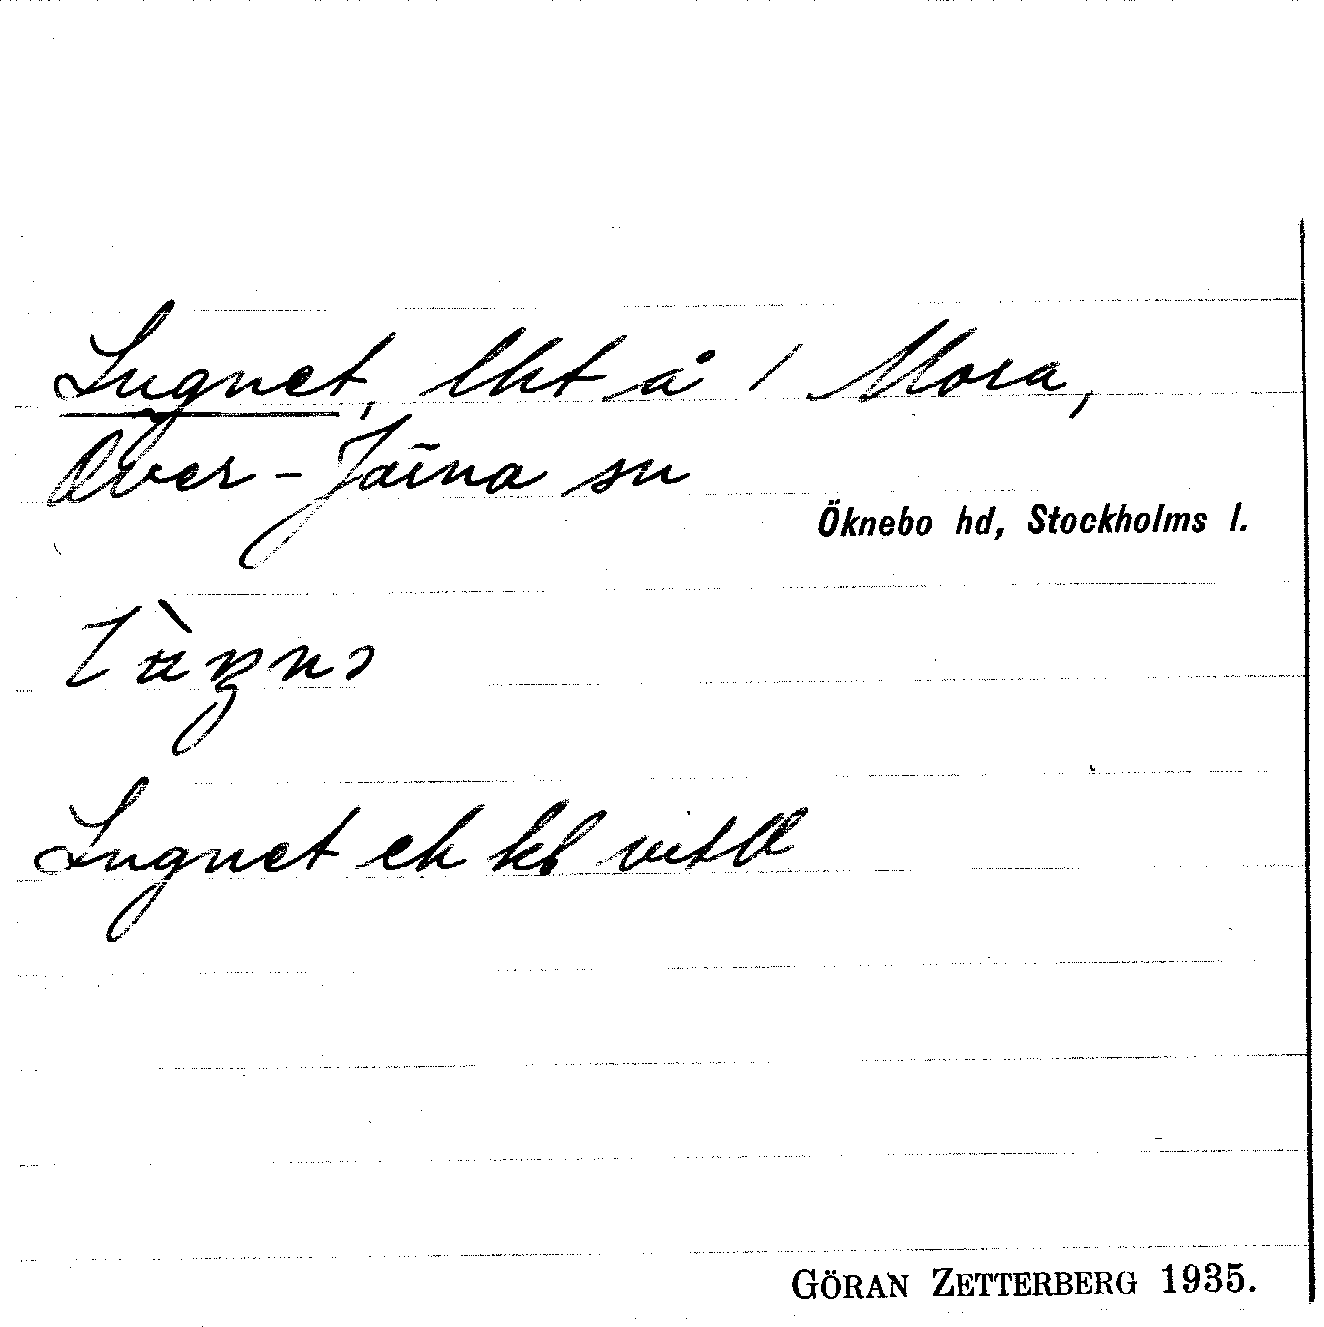 Lugnet, lht å 1 Mora,
Över-Järna sn
Öknebo hd, Stockholms l.
Lugnet ek kb
GÖRAN ZETTERBERG 1935.